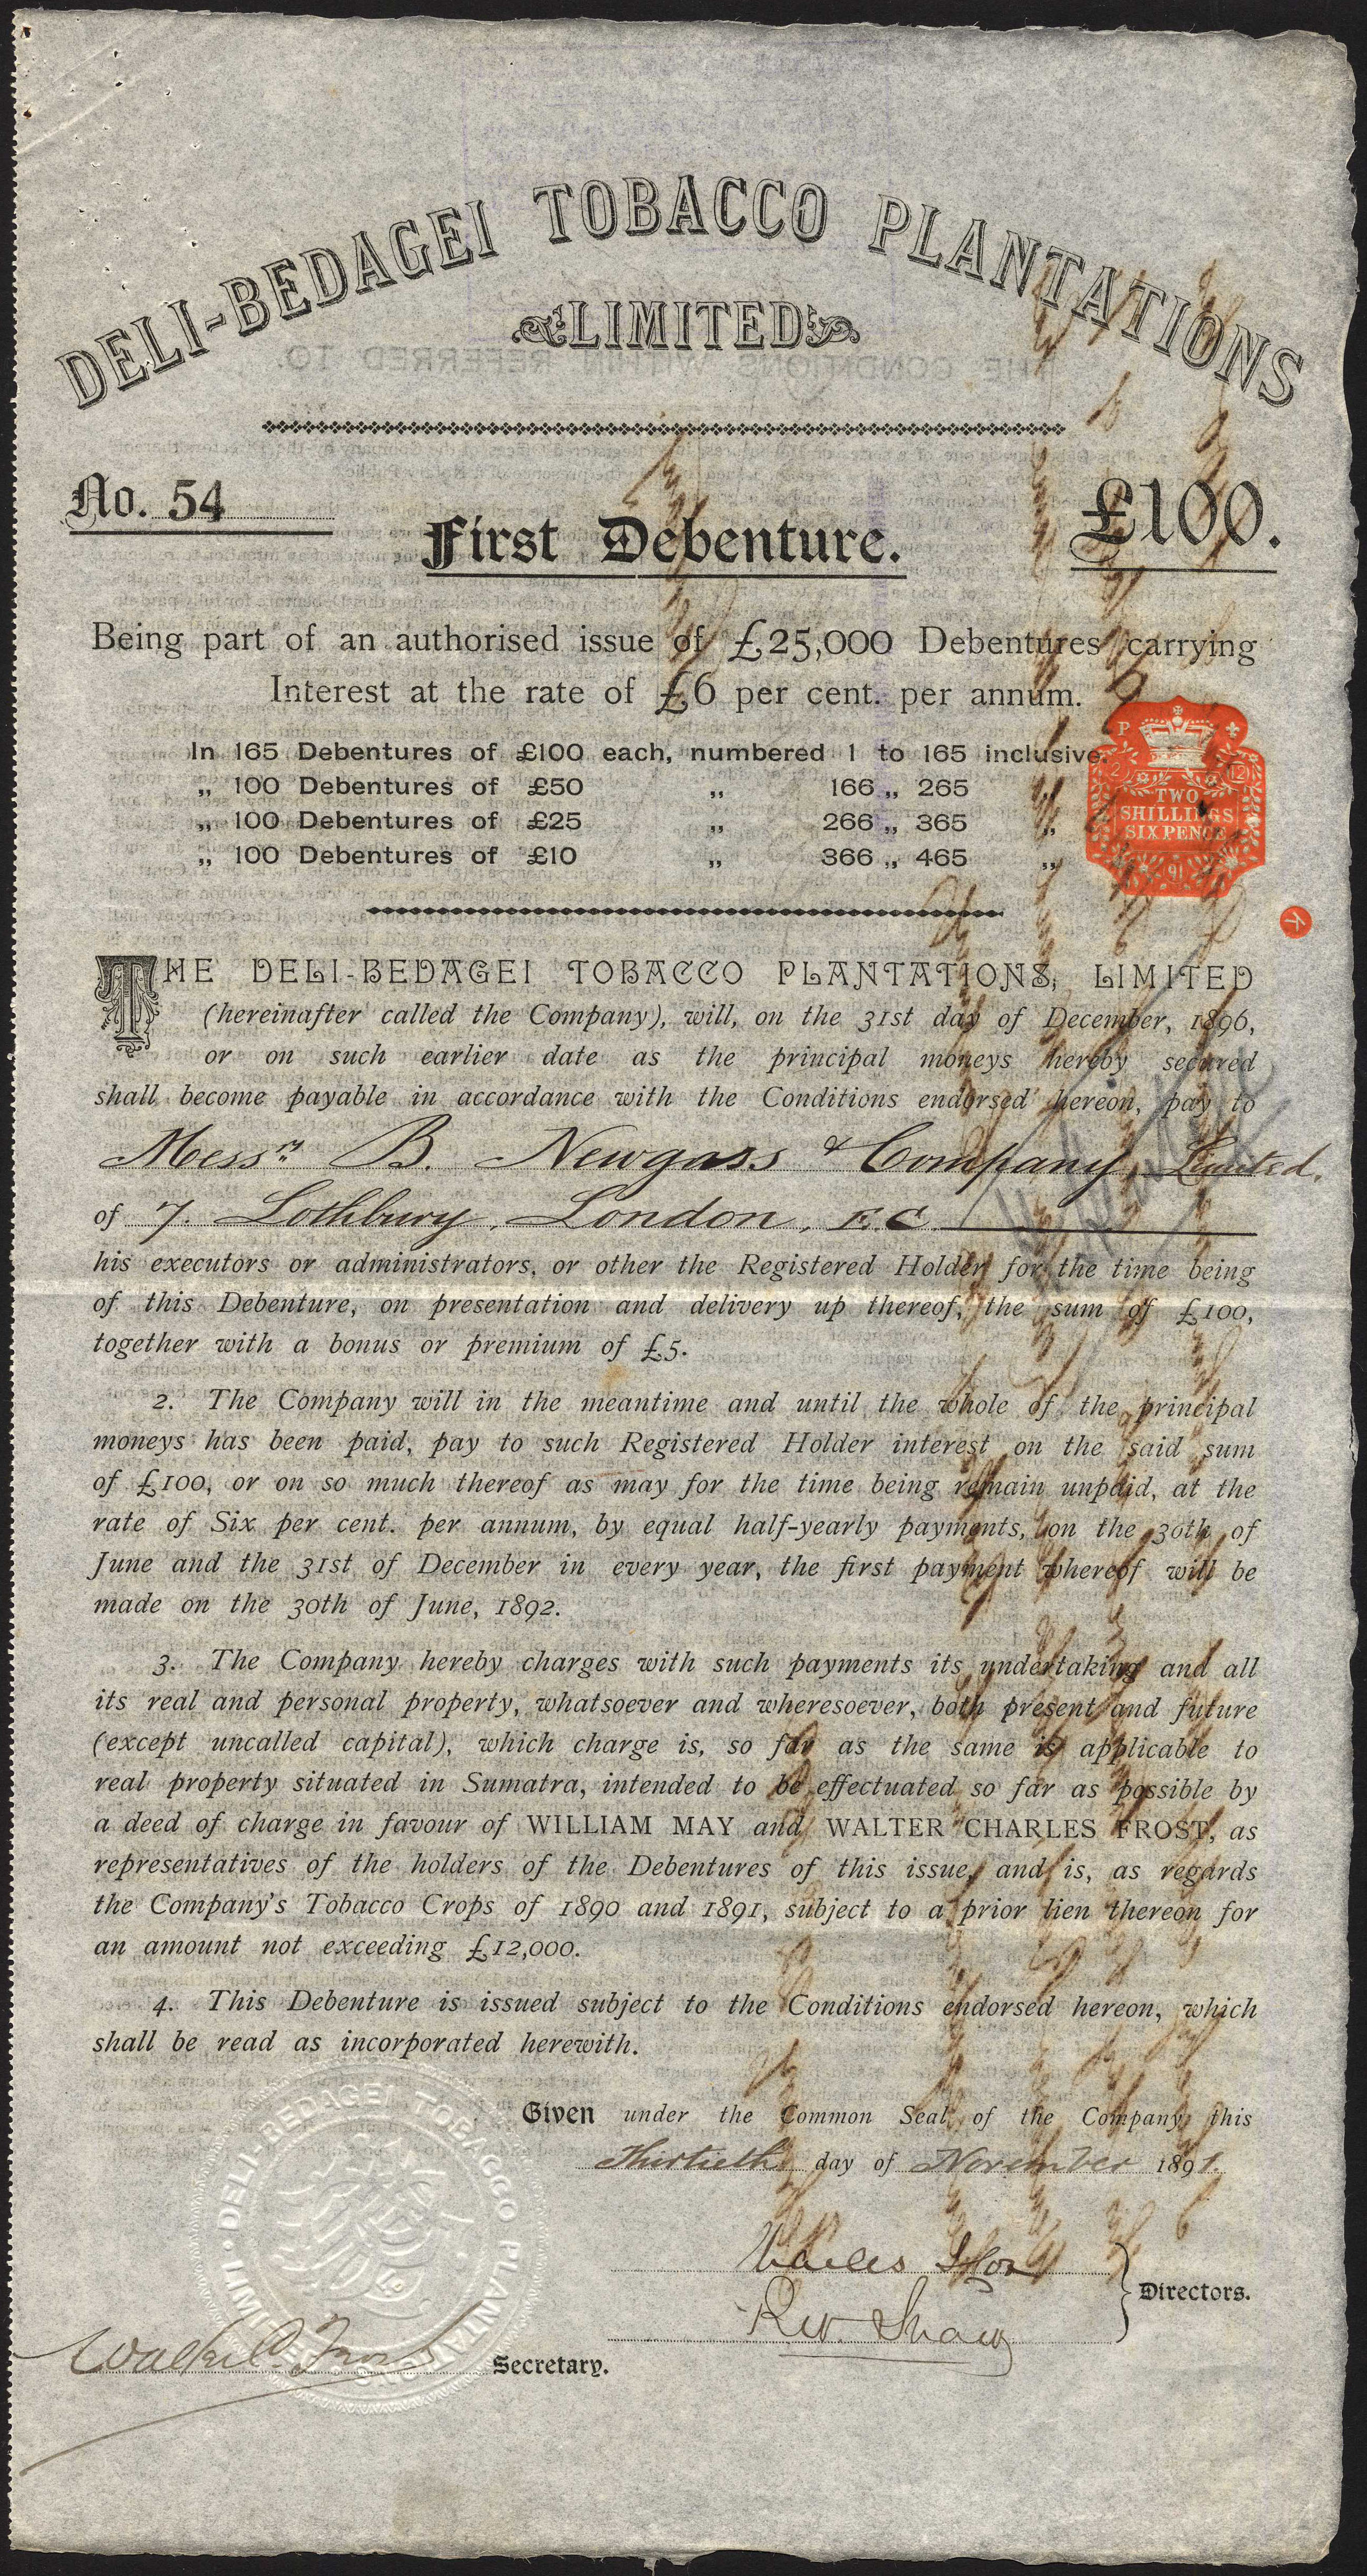 DELI-BEDAGEI TOBACCO PLANTATIONS
LIMITED
No. 54
£100.
First Debenture.
Being part of an authorised issue of £25,000 Debentures carrying
Interest at the rate of £6 per cent. per annum.
In 165 Debentures of £100 each, numbered 1 to 165 inclusive.
„ 100 Debentures of £50 „ 166 „ 265 „
„ 100 Debentures of £25 „ 266 „ 365 „
„ 100 Debentures of £10 „ 366 „ 465 „
P
2 12
TWO
SHILLINGS
SIX PENCE
91
K
THE DELI-BEDAGEI TOBACCO PLANTATIONS, LIMITED
(hereinafter called the Company), will, on the 31st day of December, 1896,
or on such earlier date as the principal moneys hereby secured
shall become payable in accordance with the Conditions endorsed hereon, pay to
Messrs. B. Newgass & Company, Limited.
of 7. Lothbury, London, E.C
his executors or administrators, or other the Registered Holder for the time being
of this Debenture, on presentation and delivery up thereof, the sum of £100,
together with a bonus or premium of £5.
2. The Company will in the meantime and until the whole of the principal
moneys has been paid, pay to such Registered Holder interest on the said sum
of £100, or on so much thereof as may for the time being remain unpaid, at the
rate of Six per cent. per annum, by equal half-yearly payments, on the 30th of
June and the 31st of December in every year, the first payment whereof will be
made on the 30th of June, 1892.
3. The Company hereby charges with such payments its undertaking and all
its real and personal property, whatsoever and wheresoever, both present and future
(except uncalled capital), which charge is, so far as the same is applicable to
real property situated in Sumatra, intended to be effectuated so far as possible by
a deed of charge in favour of WILLIAM MAY and WALTER CHARLES FROST, as
representatives of the holders of the Debentures of this issue, and is, as regards
the Company's Tobacco Crops of 1890 and 1891, subject to a prior lien thereon for
an amount not exceeding £12,000.
4. This Debenture is issued subject to the Conditions endorsed hereon, which
shall be read as incorporated herewith.
Given under the Common Seal of the Company this
Thirtieth day of November 1891.
DELI-BEDAGEI TOBACCO PLANTATIONS LIMITED
Charles
Shaw
Directors.
Walter C. Frost
Secretary.